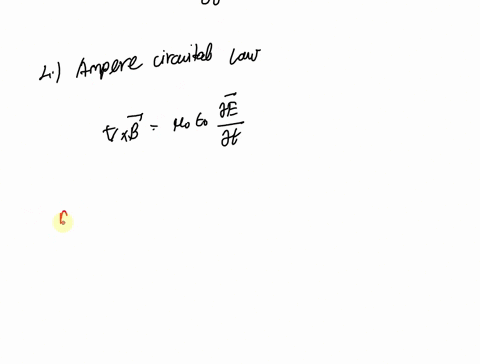 4.) Ampere circuital law
∇×B⃗ = μ₀ ε₀ ∂E⃗/∂t